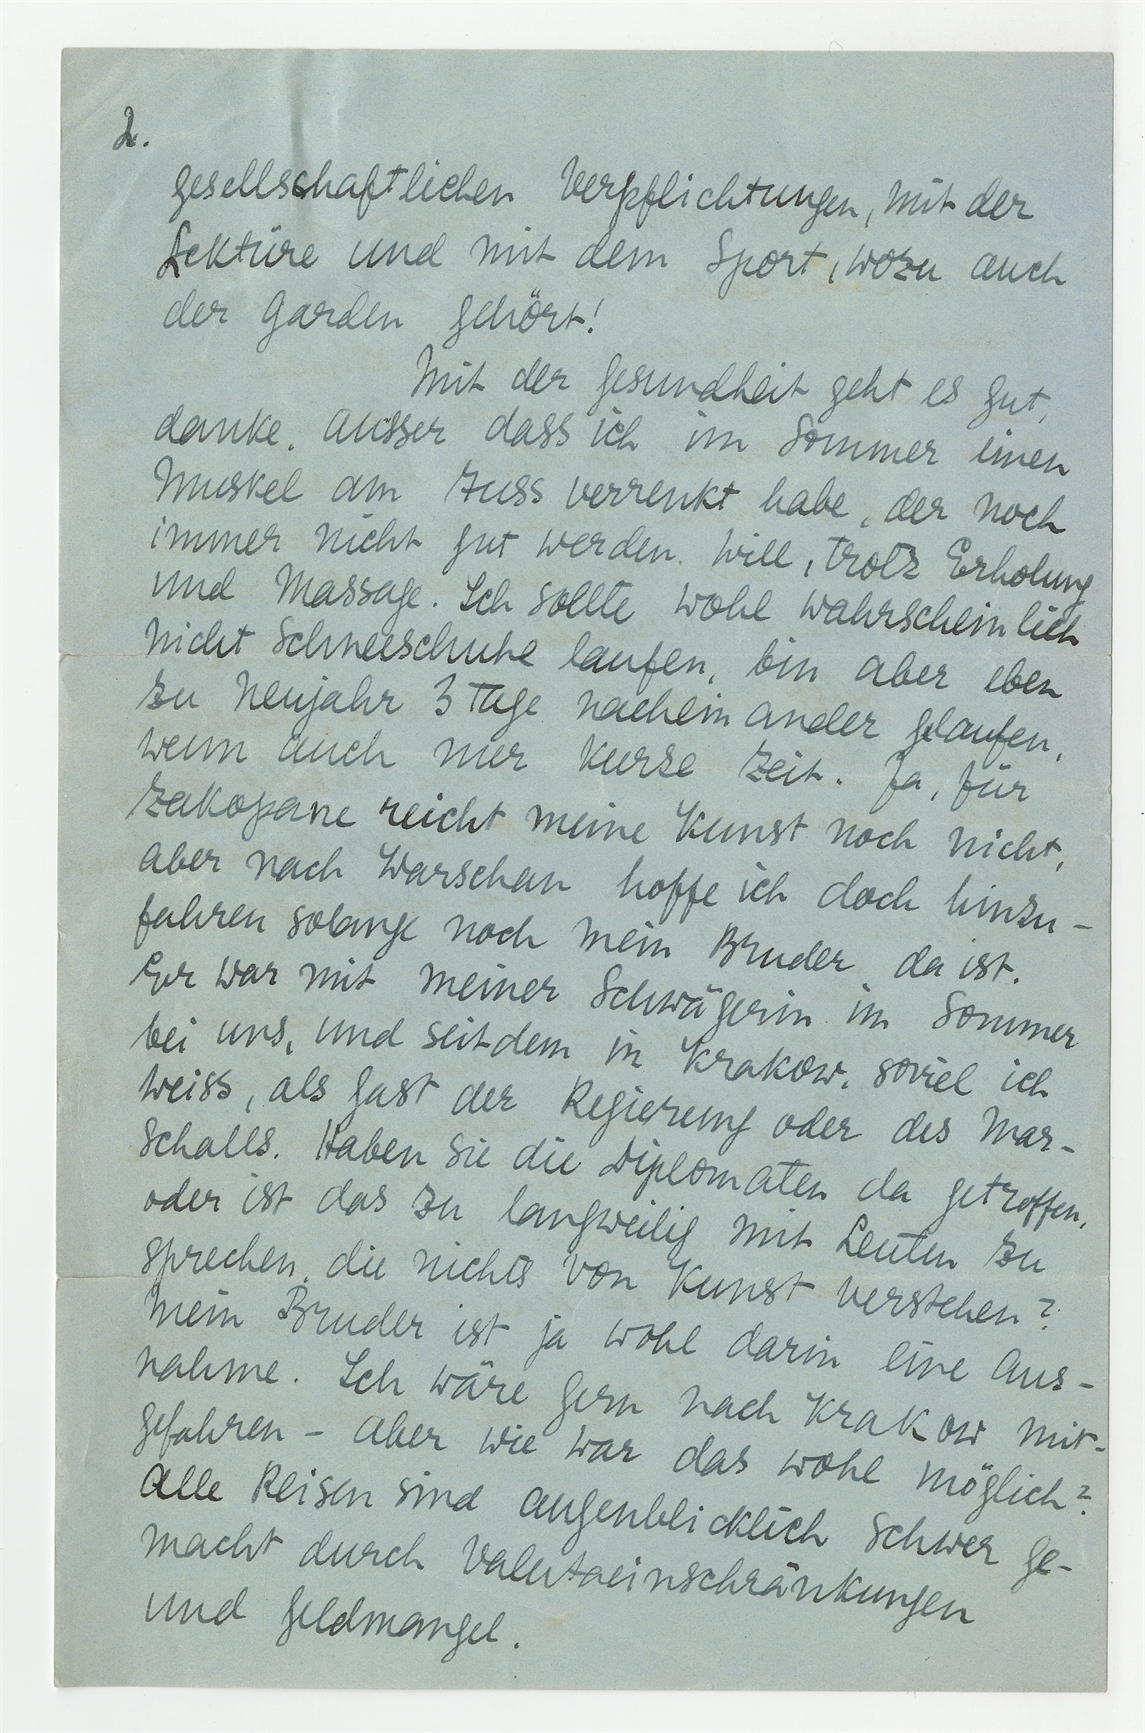 2.
gesellschaftlichen Verpflichtungen, mit der
Lektüre und mit dem Sport, wozu auch
der Garden gehört!
Mit der Gesundheit geht es gut,
danke. Ausser dass ich im Sommer einen
Muskel am Fuss verrenkt habe, der noch
immer nicht gut werden will, trotz Erholung
und Massage. Ich sollte wohl wahrscheinlich
nicht Schneeschuhe laufen, bin aber eben
zu Neujahr 3 Tage nacheinander gelaufen,
wenn auch nur kurze Zeit. Ja, für
Zakopane reicht meine Kunst noch nicht,
aber nach Warschau hoffe ich doch hinzu-
fahren solange noch mein Bruder da ist.
Er war mit meiner Schwägerin im Sommer
bei uns, und seitdem in Krakow, soviel ich
weiss, als Gast der Regierung oder des Mar-
schalls. Haben Sie die Diplomaten da getroffen,
oder ist das zu langweilig mit Leuten zu
sprechen, die nichts von Kunst verstehen?
Mein Bruder ist ja wohl darin eine Aus-
nahme. Ich wäre gern nach Krakow mit-
gefahren – aber wie war das wohl möglich?
Alle Reisen sind augenblicklich schwer ge-
macht durch Valutaeinschränkungen
und Geldmangel.